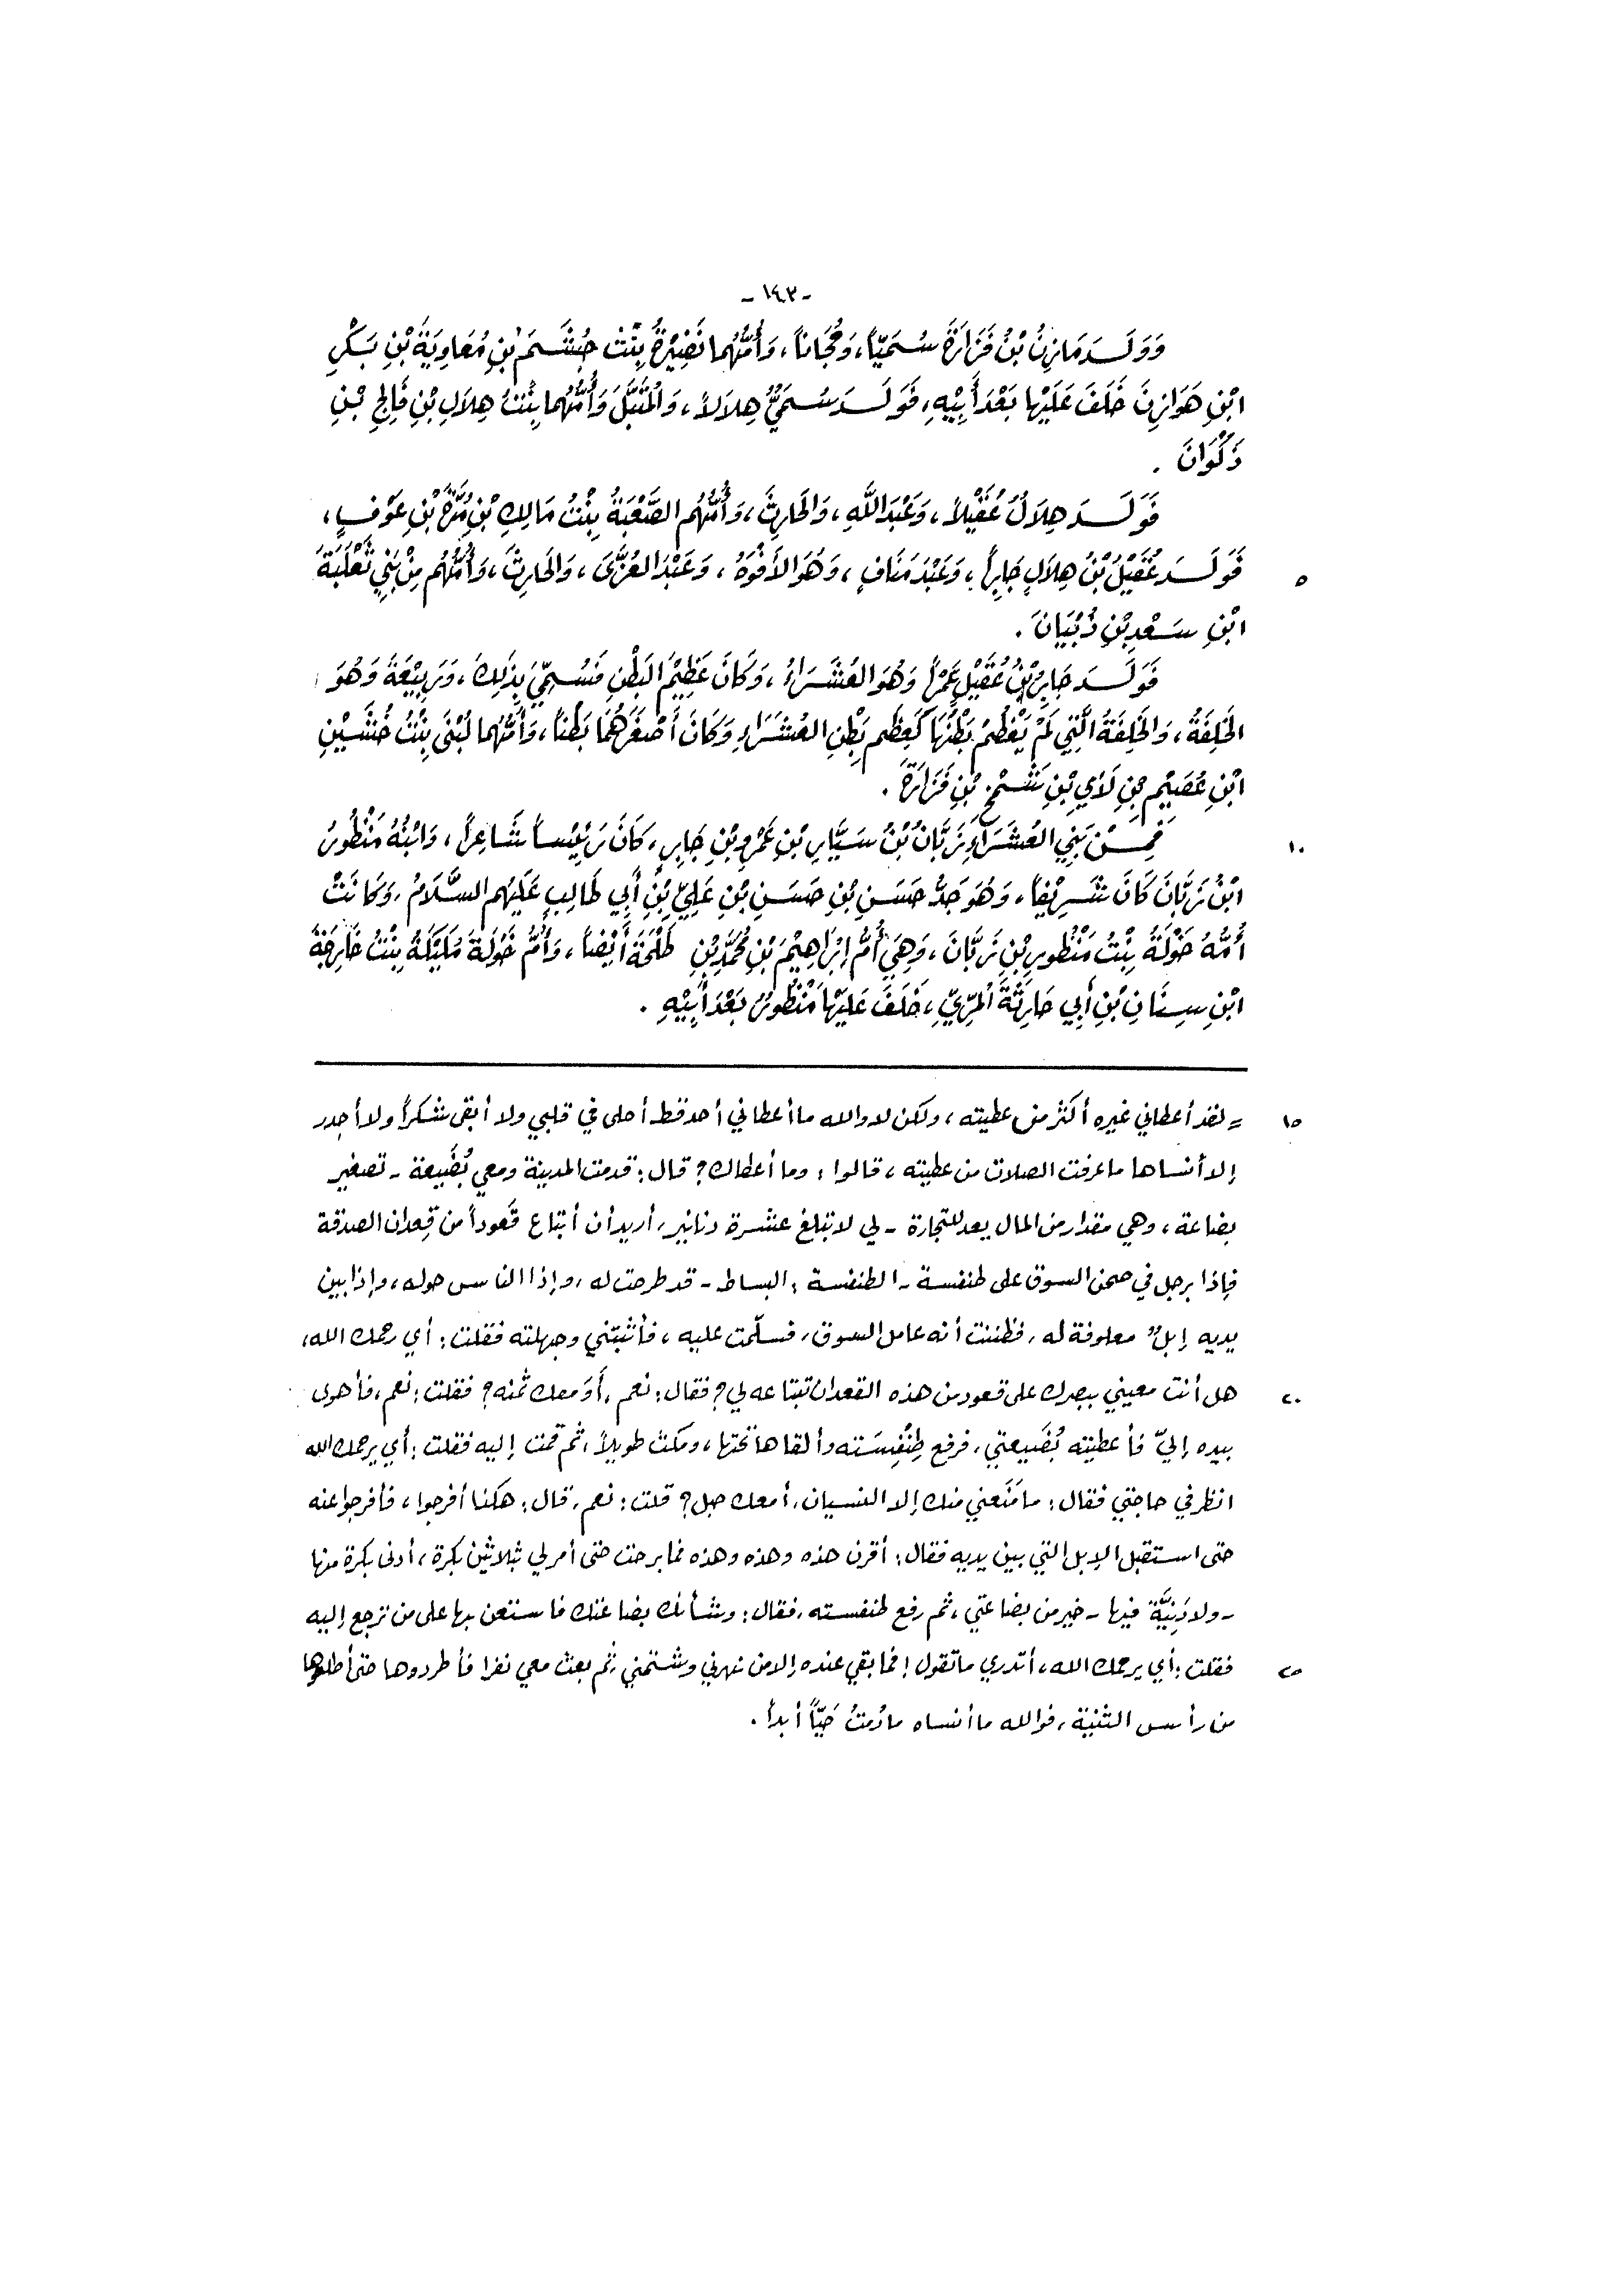 - ١٤٣ -
وَوَلَــدَ مَازِنُ بْنُ فَزَارَةَ سُــمَيّاً، وَمُجَاناً، وَأُمُّهُما نَضِيْرَةُ بِنْتُ جُشَــمَ بْنِ مُعَاوِيَةَ بْنِ بَـكْرِ
ابْنِ هَوَازِنَ خَلَفَ عَلَيْها بَعْدَ أَبِيْهِ، فَوَلَــدَ سُــمَيُّ هِلاَلاً، وَالمُثَبَّلَ وَأُمُّهُما بِنْتُ هِلاَلِ بْنِ فَالِجِ بْنِ
ذَكْوَانَ .
فَوَلَــدَ هِلاَلُ عُقَيْلاً، وَعَبْدَ اللَّهِ، وَالحَارِثَ، وَأُمُّهُم الصَّعْبَةُ بِنْتُ مَالِكِ بْنِ مُرَّةَ بْنِ عَوْفٍ،
٥ فَوَلَــدَ عُقَيْلُ بْنُ هِلاَلٍ جَابِراً، وَعَبْدَ مَنَافٍ، وَهُوَ الأَفْوَهُ، وَعَبْدَ العُزَّى، وَالحَارِثَ، وَأُمُّهُم مِنْ بَنِي ثَعْلَبَةَ
ابْنِ سَـعْدِ بْنِ ذُبْيَانَ .
فَوَلَــدَ جَابِرُ بْنُ عُقَيْلٍ عَمْراً وَهُوَ العُشَـرَاءُ، وَكَانَ عَظِيْمَ البَطْنِ فَسُـمِّيَ بِذَلِكَ، وَرَبِيْعَةَ وَهُوَ
الخَلِفَةُ، وَالخَلِفَةُ الَّتِي لَمْ يَعْظُمْ بَطْنُهَا كَعِظَمِ بَطْنِ العُشَـرَاءِ وَكَانَ أَصْغَرَهُمَا بَطْناً، وَأُمُّهُما لُبْنَى بِنْتُ خُشَـيْنِ
ابْنِ عُصَيْمِ بْنِ لَأْيِ بْنِ شَـمْخِ بْنِ فَزَارَةَ .
١٠ فَمِـنْ بَنِي العُشَـرَاءِ زَبَّانُ بْنُ سَـيَّارِ بْنِ عَمْرِو بْنِ جَابِرٍ، كَانَ رَئِيْسـاً شَـاعِراً، وَابْنُهُ مَنْظُورُ
ابْنُ زَبَّانَ كَانَ شَـرِيْفاً، وَهُوَ جَدُّ حَسَـنِ بْنِ حَسَـنِ بْنِ عَلِيِّ بْنِ أَبِي طَالِبٍ عَلَيْهِم السَّـلاَمُ، وَكَانَتْ
أُمُّهُ خَوْلَةُ بِنْتُ مَنْظُورِ بْنِ زَبَّانَ، وَهِيَ أُمُّ إِبْرَاهِيْمَ بْنِ مُحَمَّدِ بْنِ طَلْحَةَ أَيْضاً، وَأُمُّ خَوْلَةَ مُلَيْكَةُ بِنْتُ خَارِجَةَ
ابْنِ سِـنَانِ بْنِ أَبِي حَارِثَةَ المُرِّيِّ، خَلَفَ عَلَيْهَا مَنْظُورُ بَعْدَ أَبِيْهِ .
١٥ = لقد أعطاني غيره أكثر من عطيته، ولكن لا والله ما أعطاني أحد قط أحلى في قلبي ولا أبقى شكراً ولا أجدر
إلا أنساها ما عرفت الصلات من عطيته، قالوا: وما أعطاك؟ قال: قدمت المدينة ومعي بُضَيعة - تصغير
بضاعة، وهي مقدار من المال يعد للتجارة - لي لا تبلغ عشرة دنانير، أريد أن أبتاع قَعوداً من قِعدان الصدقة
فإذا برجل في صحن السوق على طنفسة - الطنفسة: البساط - قد طرحت له، وإذا الناس حوله، وإذا بين
يديه إبلٌ معلوفة له، فظننت أنه عامل السوق، فسلّمت عليه، فأثبتني وجهلته فقلت: أي رحمك الله،
٢٠ هل أنت معيني ببصرك على قعود من هذه القعدان تبتاعه لي؟ فقال: نعم، أَوَ معك ثمنه؟ فقلت: نعم، فأهوى
بيده إليّ فأعطيته بُضَيعتي، فرفع طِنْفِسَته وألقاها تحتها، ومكث طويلاً، ثم قمت إليه فقلت: أي يرحمك الله
انظر في حاجتي فقال: ما مَنَعني منك إلا النسيان، أمعك حبل؟ قلت: نعم، قال: هكذا أفرجوا، فأفرجوا عنه
حتى استقبل الإبل التي بين يديه فقال: أقرن هذه وهذه وهذه فما برحت حتى أمر لي بثلاثين بكرة، أدنى بكرة منها
- ولا دَنِيَّة فيها - خير من بضاعتي، ثم رفع طنفسته، فقال: وشأنك بضاعتك فاستعن بها على من ترجع إليه
٢٥ فقلت: أي يرحمك الله، أتدري ما تقول! فما بقي عنده إلا من نهرني وشتمني، ثم بعث معي نفرا فأطردوها حتى أطلعوها
من رأس الثنية، فوالله ما أنساه ما دُمتُ حَيّاً أبداً .